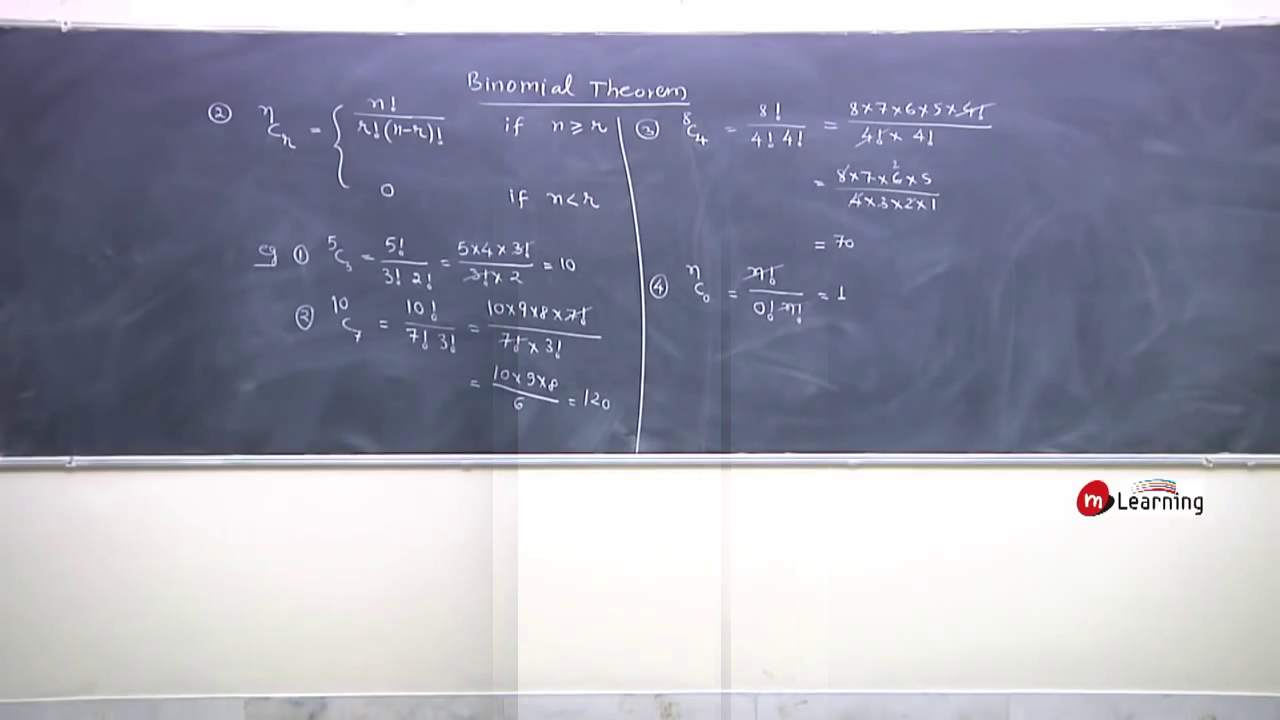 Binomial Theorem
② ⁿCᵣ = { n! / r!(n-r)! if n ≥ r
0 if n < r
eg ① ⁵C₃ = 5! / 3! 2! = 5×4×3! / 3!×2 = 10
② ¹⁰C₇ = 10! / 7! 3! = 10×9×8×7! / 7!×3!
= 10×9×8 / 6 = 120
③ ⁸C₄ = 8! / 4! 4! = 8×7×6×5×4! / 4!×4!
= 8×7×6×5 / 4×3×2×1
2
= 70
④ ⁿC₀ = n! / 0! n! = 1
m Learning